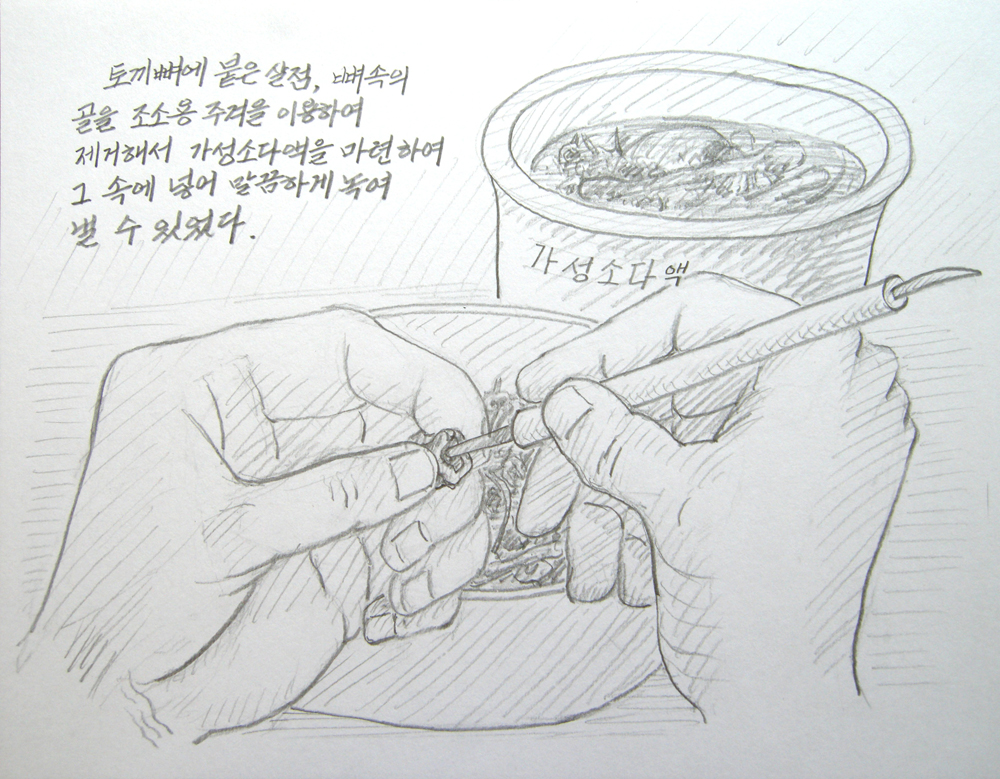 토끼뼈에 붙은 살점, 뼈속의
골을 조소용 주걱을 이용하여
제거해서 가성소다액을 마련하여
그 속에 넣어 말끔하게 녹여
낼 수 있었다.
가성소다액